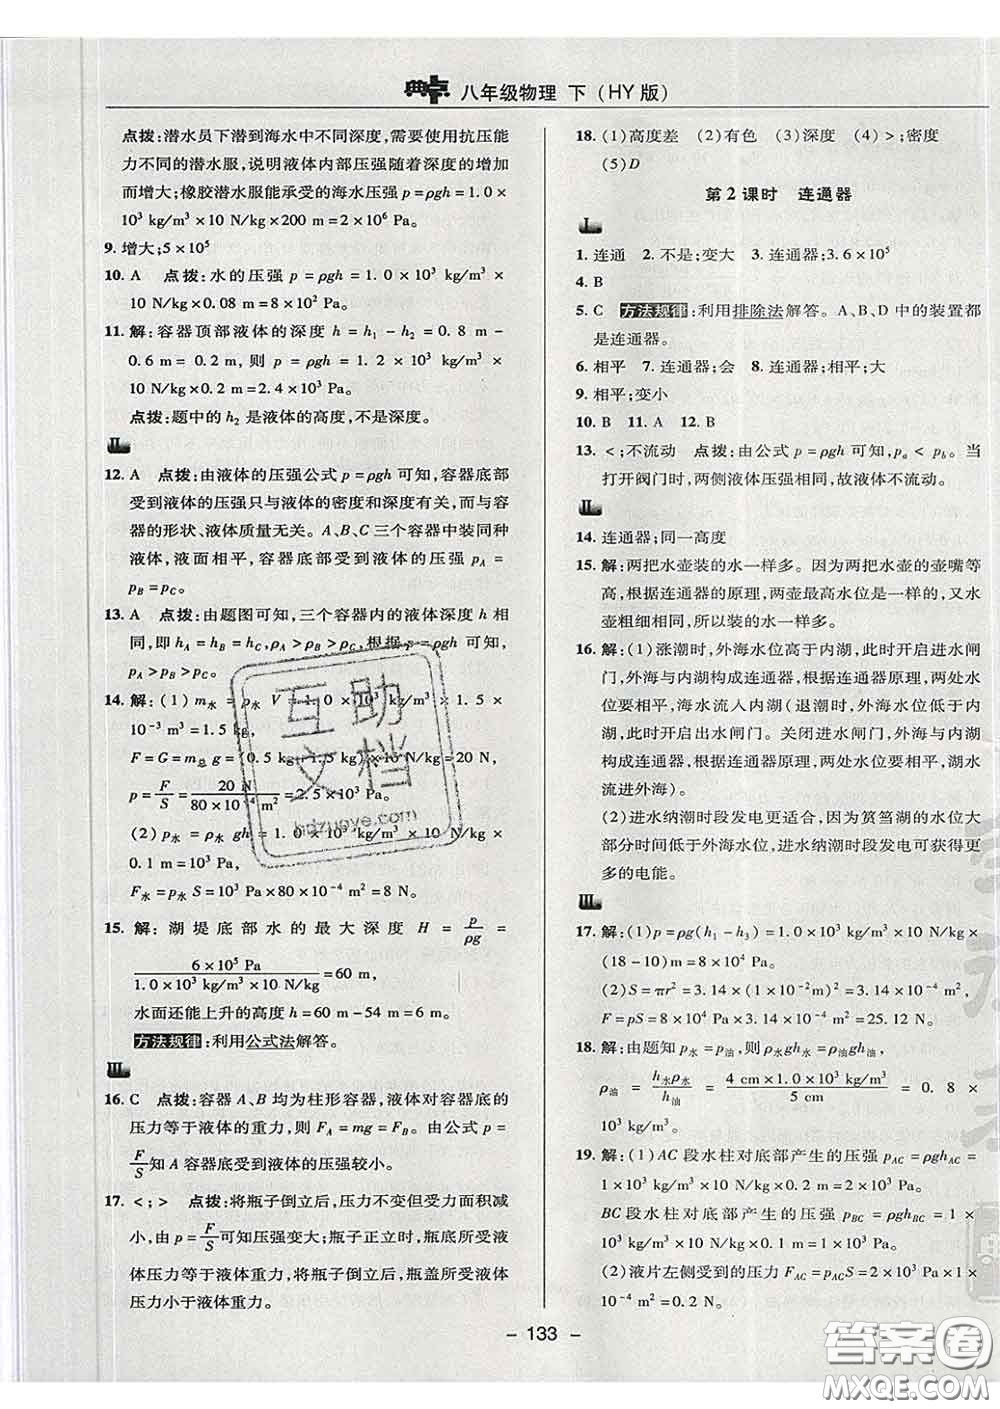 典中点 八年级物理 下(HY 版)
点拨:潜水员下潜到海水中不同深度,需要使用抗压能
力不同的潜水服,说明液体内部压强随着深度的增加
而增大;橡胶潜水服能承受的海水压强 p=ρgh=1.0×
10³ kg/m³×10 N/kg×200 m=2×10⁶ Pa.
9. 增大;5×10⁵
10. A 点拨:水的压强 p=ρgh=1.0×10³ kg/m³×
10 N/kg×0.08 m=8×10² Pa.
11. 解:容器顶部液体的深度 h=h₁-h₂=0.8 m-
0.6 m=0.2 m,则 p=ρgh=1.2×10³ kg/m³×
10 N/kg×0.2 m=2.4×10³ Pa.
点拨:题中的 h₂ 是液体的高度,不是深度。
Ⅱ
12. A 点拨:由液体的压强公式 p=ρgh 可知,容器底部
受到液体的压强只与液体的密度和深度有关,而与容
器的形状、液体质量无关。A、B、C三个容器中装同种
液体,液面相平,容器底部受到液体的压强 pA=
pB=pC。
13. A 点拨:由题图可知,三个容器内的液体深度 h 相
同,即 hA=hB=hC,ρA>ρB>ρC,根据 p=ρgh 可知,
pA>pB>pC。
14. 解:(1) m水=ρ水 V=1.0×10³ kg/m³×1.5×
10⁻³ m³=1.5 kg,
F=G=m总g=(0.5 kg+1.5 kg)×10 N/kg=20 N,
p=F/S=20 N/80×10⁻⁴ m²=2.5×10³ Pa.
(2) p水=ρ水 gh=1.0×10³ kg/m³×10 N/kg×
0.1 m=10³ Pa,
F水=p水 S=10³ Pa×80×10⁻⁴ m²=8 N.
15. 解:湖堤底部水的最大深度 H=p/ρg=
6×10⁵ Pa/1.0×10³ kg/m³×10 N/kg=60 m,
水面还能上升的高度 h=60 m-54 m=6 m。
方法规律:利用公式法解答。
Ⅲ
16. C 点拨:容器 A、B 均为柱形容器,液体对容器底的
压力等于液体的重力,则 FA=mg=FB。由公式 p=
F/S知 A 容器底受到液体的压强较小。
17. <;> 点拨:将瓶子倒立后,压力不变但受力面积减
小,由 p=F/S可知压强变大;瓶子正立时,瓶底所受液
体压力等于液体重力,将瓶子倒立后,瓶盖所受液体
压力小于液体重力。
18. (1)高度差 (2)有色 (3)深度 (4)>;密度
(5)D
第2课时 连通器
Ⅰ
1. 连通 2. 不是;变大 3. 连通器;3.6×10⁵
4. B
5. C 方法规律:利用排除法解答。A、B、D 中的装置都
是连通器。
6. 相平 7. 连通器;会 8. 连通器;相平;大
9. 相平;变小
10. B 11. A 12. B
13. <;不流动 点拨:由公式 p=ρgh 可知,pa<pb。当
打开阀门时,两侧液体压强相同,故液体不流动。
Ⅱ
14. 连通器;同一高度
15. 解:两把水壶装的水一样多。因为两把水壶的壶嘴等
高,根据连通器的原理,两壶最高水位是一样的,又水
壶粗细相同,所以装的水一样多。
16. 解:(1)涨潮时,外海水位高于内湖,此时开启进水闸
门,外海与内湖构成连通器,根据连通器原理,两处水
位要相平,海水流入内湖(退潮时,外海水位低于内
湖,此时开启出水闸门。关闭进水闸门,外海与内湖
构成连通器,根据连通器原理,两处水位要相平,湖水
流进外海)。
(2)进水纳潮时段发电更适合,因为筼筜湖的水位大
部分时间低于外海水位,进水纳潮时段发电可获得更
多的电能。
Ⅲ
17. 解:(1)p=ρg(h₁-h₃)=1.0×10³ kg/m³×10 N/kg×
(18-10)m=8×10⁴ Pa。
(2)S=πr²=3.14×(1×10⁻²m)²=3.14×10⁻⁴ m²,
F=pS=8×10⁴ Pa×3.14×10⁻⁴ m²=25.12 N。
18. 解:由题知 p水=p油,则 ρ水gh水=ρ油gh油,
ρ油=h水ρ水/h油=4 cm×1.0×10³ kg/m³/5 cm=0.8×
10³ kg/m³。
19. 解:(1)AC 段水柱对底部产生的压强 pAC=ρghAC=
1×10³ kg/m³×10 N/kg×0.2 m=2×10³ Pa,
BC段水柱对底部产生的压强 pBC=ρghBC=1×
10³ kg/m³×10 N/kg×0.1 m=1×10³ Pa。
(2)液片左侧受到的压力 FAC=pACS=2×10³ Pa×1×
10⁻⁴ m²=0.2 N。
- 133 -
互助
文档
hdzuoye.com
答案圈
MXQE.COM